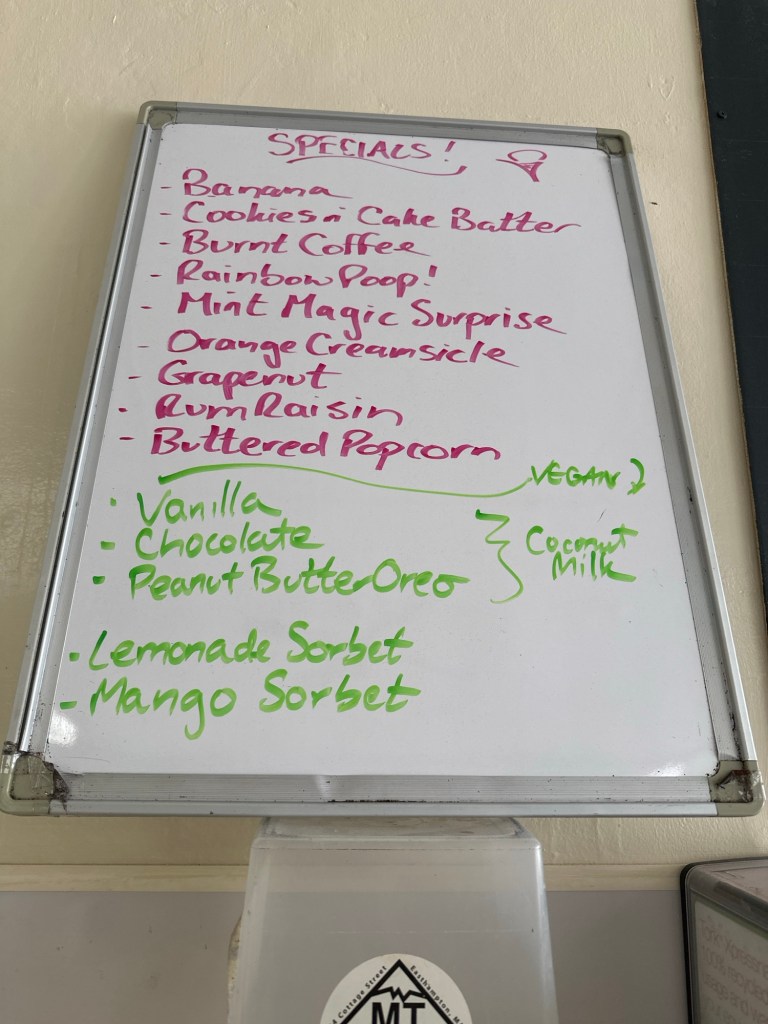 SPECIALS!
- Banana
- Cookies n' Cake Batter
- Burnt Coffee
- Rainbow Poop!
- Mint Magic Surprise
- Orange Creamsicle
- Grapenut
- Rum Raisin
- Buttered Popcorn
VEGAN
- Vanilla
- Chocolate
- Peanut Butter Oreo
Coconut
Milk
- Lemonade Sorbet
- Mango Sorbet
Cottage Street
Easthampton, M
MT